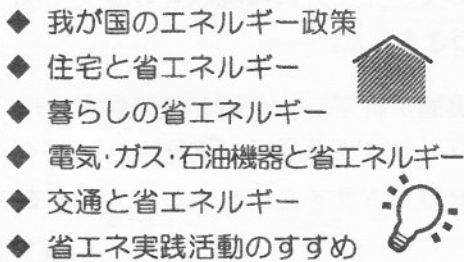 ◆ 我が国のエネルギー政策
◆ 住宅と省エネルギー
◆ 暮らしの省エネルギー
◆ 電気・ガス・石油機器と省エネルギー
◆ 交通と省エネルギー
◆ 省エネ実践活動のすすめ